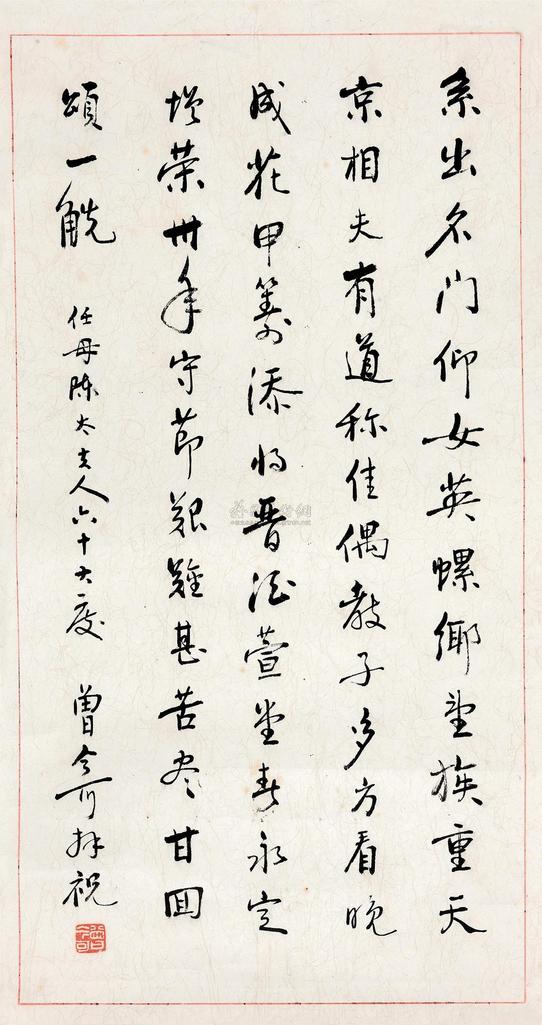 系出名门仰女英螺鄉望族重天
京相夫有道称佳偶教子多方看晚
成花甲筹添将晋酒萱堂春永定
增荣卅年守節艱難甚苦尽甘回
頌一觥 任母陳太夫人六十大慶 曾今可拜祝